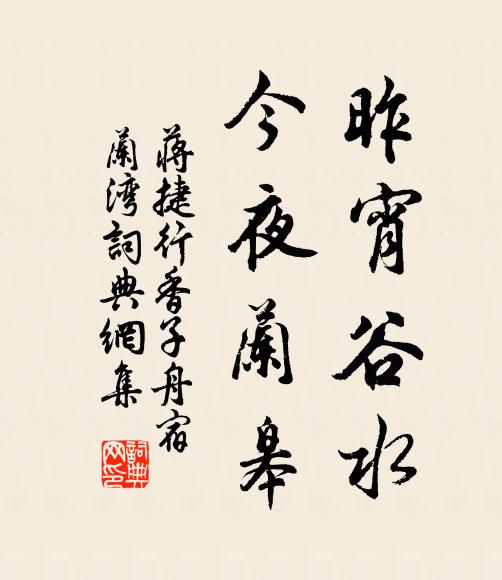 昨宵谷水
今夜蘭皋
蔣捷行香子舟宿
蘭灣詞典網集
詞典
网印